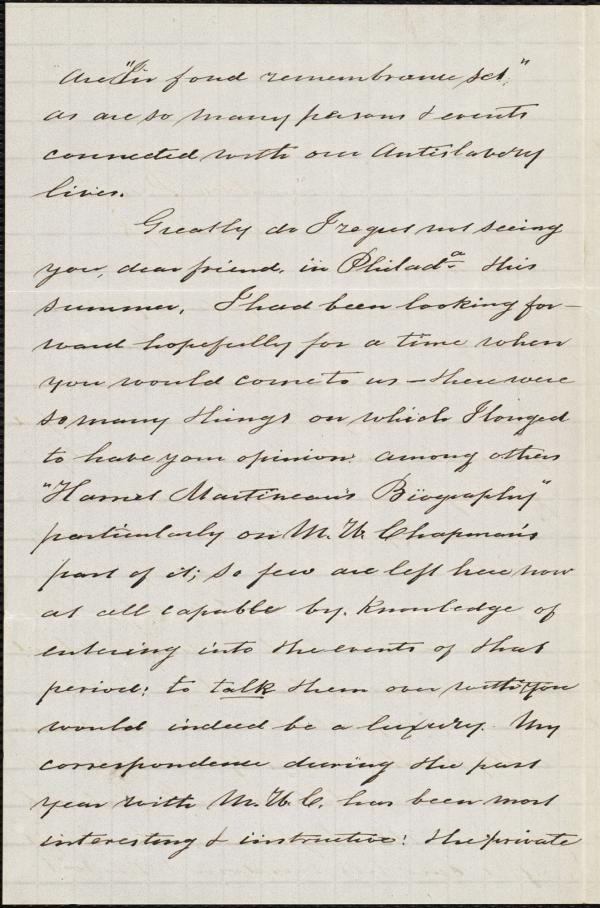 are "in fond remembrance set,"
as are so many persons & events
connected with our Antislavery
lives.
Greatly do I regret not seeing
you, dear friend, in Philadᵃ this
summer. I had been looking for-
ward hopefully for a time when
you would come to us — there were
so many things on which I longed
to have your opinion. among others
"Harriet Martineau's Biography"
particularly on M. W. Chapman's
part of it; so few are left here now
at all capable by knowledge of
entering into the events of that
period: to talk them over with you
would indeed be a luxury. My
correspondence during the past
year with M. W. C. has been most
interesting & instructive: the private